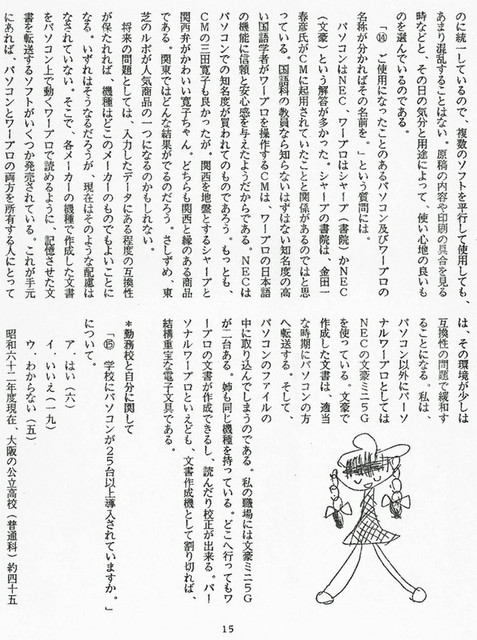 のに統一しているので、複数のソフトを平行して使用しても、
あまり混乱することはない。原稿の内容や印刷の具合を見る
時などと、その日の気分と用途によって、使い心地の良いも
のを選んでいるのである。
「⑭　ご使用になったことのあるパソコン及びワープロの
名称が分かればその名前を。」という質問には。
パソコンはNEC、ワープロはシャープ（書院）かNEC
（文豪）という解答が多かった。シャープの書院は、金田一
春彦氏がCMに起用されていたことと関係があるのではと思
っている。国語科の教員なら知らないはずはない知名度の高
い国語学者がワープロを操作するCMは、ワープロの日本語
の機能に信頼と安心感を与えたようだからである。NECは
パソコンでの知名度が買われてのものであろう。もっとも、
CMの三田寛子も良かったが。関西を地盤とするシャープと
関西弁がかわいい寛子ちゃん。どちらも関西と縁のある商品
である。関東ではどんな結果がでるのだろう。さしずめ、東
芝のルポが人気商品の一つになるのかもしれない。
将来の問題としては、入力したデータにある程度の互換性
が保たれれば、機種はどこのメーカーのものでもよいことに
なる。いずれはそうなるだろうが、現在はそのような配慮は
なされていない。そこで、各メーカーの機種で作成した文書
をパソコン上で動くワープロで読めるように、記憶させた文
書を転送するソフトがいくつか発売されている。これが手元
にあれば、パソコンとワープロの両方を所有する人にとって
は、その環境が少しは
互換性の問題で緩和す
ることになる。私は、
パソコン以外にパーソ
ナルワープロとしては
NECの文豪ミニ5G
を使っている。文豪で
作成した文書は、適当
な時期にパソコンの方
へ転送する。そして、
パソコンのファイルの
中に取り込んでしまうのである。私の職場には文豪ミニ5G
が二台ある。姉も同じ機種を持っている。どこへ行ってもワ
ープロの文書が作成できるし、読んだり校正が出来る。パー
ソナルワープロといえども、文書作成機として割り切れば、
結構重宝な電子文具である。
＊勤務校と自分に関して
「⑮　学校にパソコンが25台以上導入されていますか。」
について。
ア．はい（六）
イ．いいえ（一九）
ウ．わからない（五）
昭和六十二年度現在、大阪の公立高校（普通科）約四十五
15